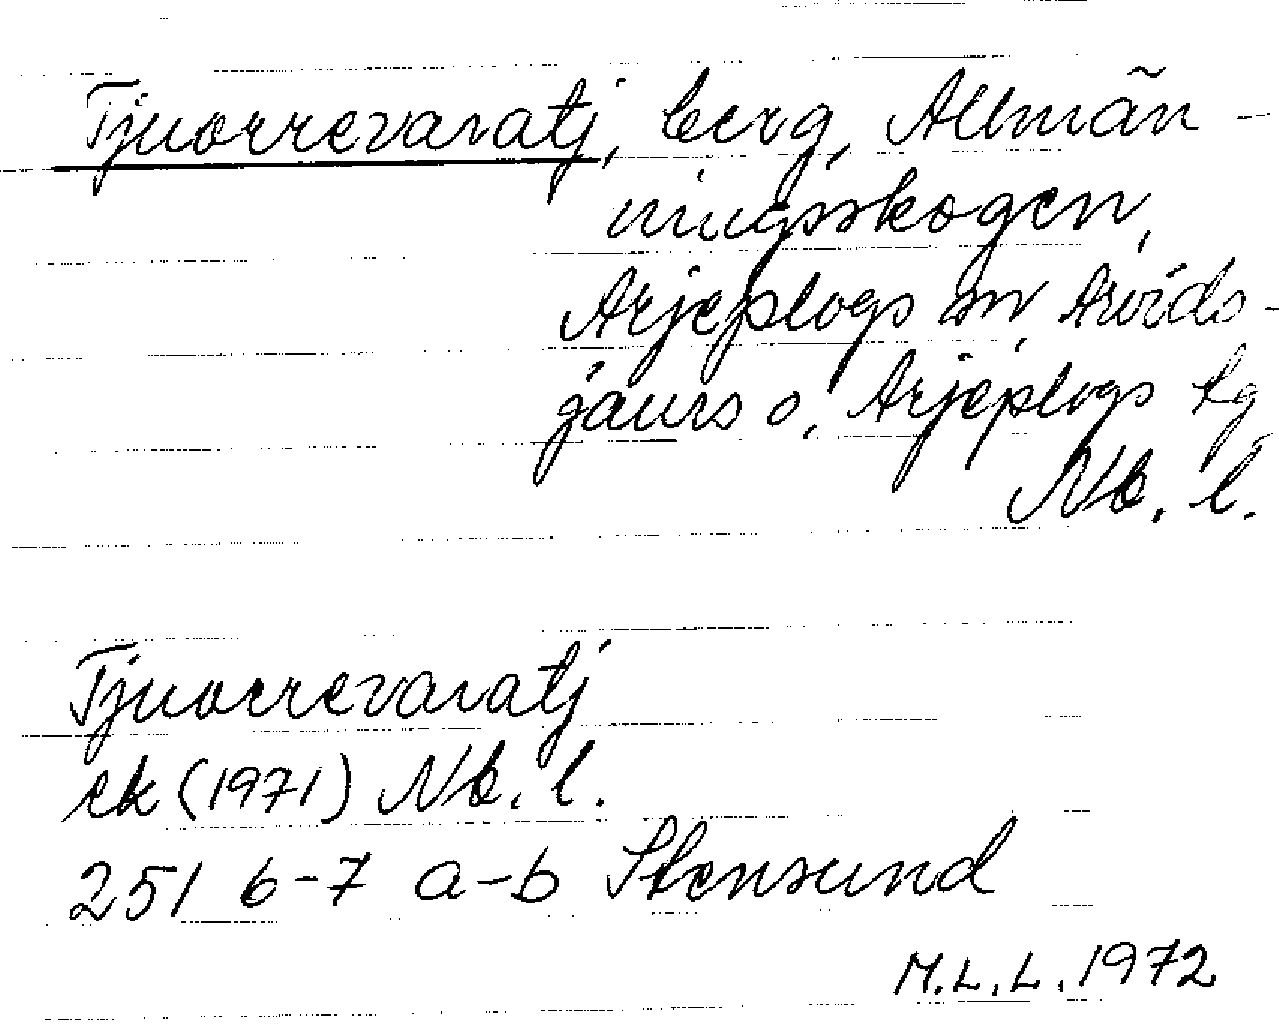 Tjuorrevaratj, berg, Allmän-
ningsskogen,
Arjeplogs sn, Arvids-
jaurs o, Arjeplogs tg
Nb. l.
Tjuorrevaratj
ek (1971) Nb. l.
251 6-7 a-b Stensund
M.L.L. 1972